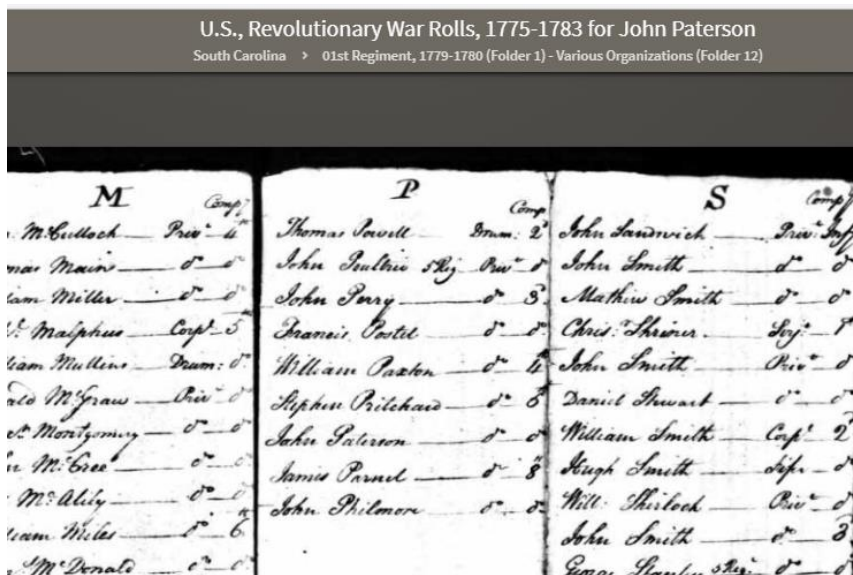 U.S., Revolutionary War Rolls, 1775-1783 for John Paterson
South Carolina > 01st Regiment, 1779-1780 (Folder 1) - Various Organizations (Folder 12)
M
Comp^y
McCulloch — Priv^t 4^th
Main — d^o — d^o
Miller — d^o — d^o
Malphus — Corp^l 5^th
Mullins — Drum: d^o
McGraw — Priv^t d^o
Montgomery — d^o — d^o
McGree — d^o — d^o
McAlily — d^o — d^o
Miles — d^o — 6^th
McDonald — d^o — d^o
P
Comp
Thomas Powell — Drum: 2^d
John Poultrie 5 Reg Priv^t d^o
John Perry — d^o 3^d
Francis Postel d^o d^o
William Paxton — d^o 4^th
Stephen Pritchard — d^o 6^th
John Paterson — d^o — d^o
James Parnel — d^o 8^th
John Philmore — d^o — d^o
S
Comp^y
John Sandwich — Priv^t
John Smith — d^o — d^o
Mathew Smith — d^o — d^o
Chris: Shriner — Serj^t 1^st
John Smith — Priv^t — d^o
Daniel Stewart — d^o — d^o
William Smith — Corp^l 2^d
Hugh Smith — Fifer — d^o
Will: Shirlock — Priv^t — d^o
John Smith — d^o — 3^d
George 5 Reg^t d^o — d^o